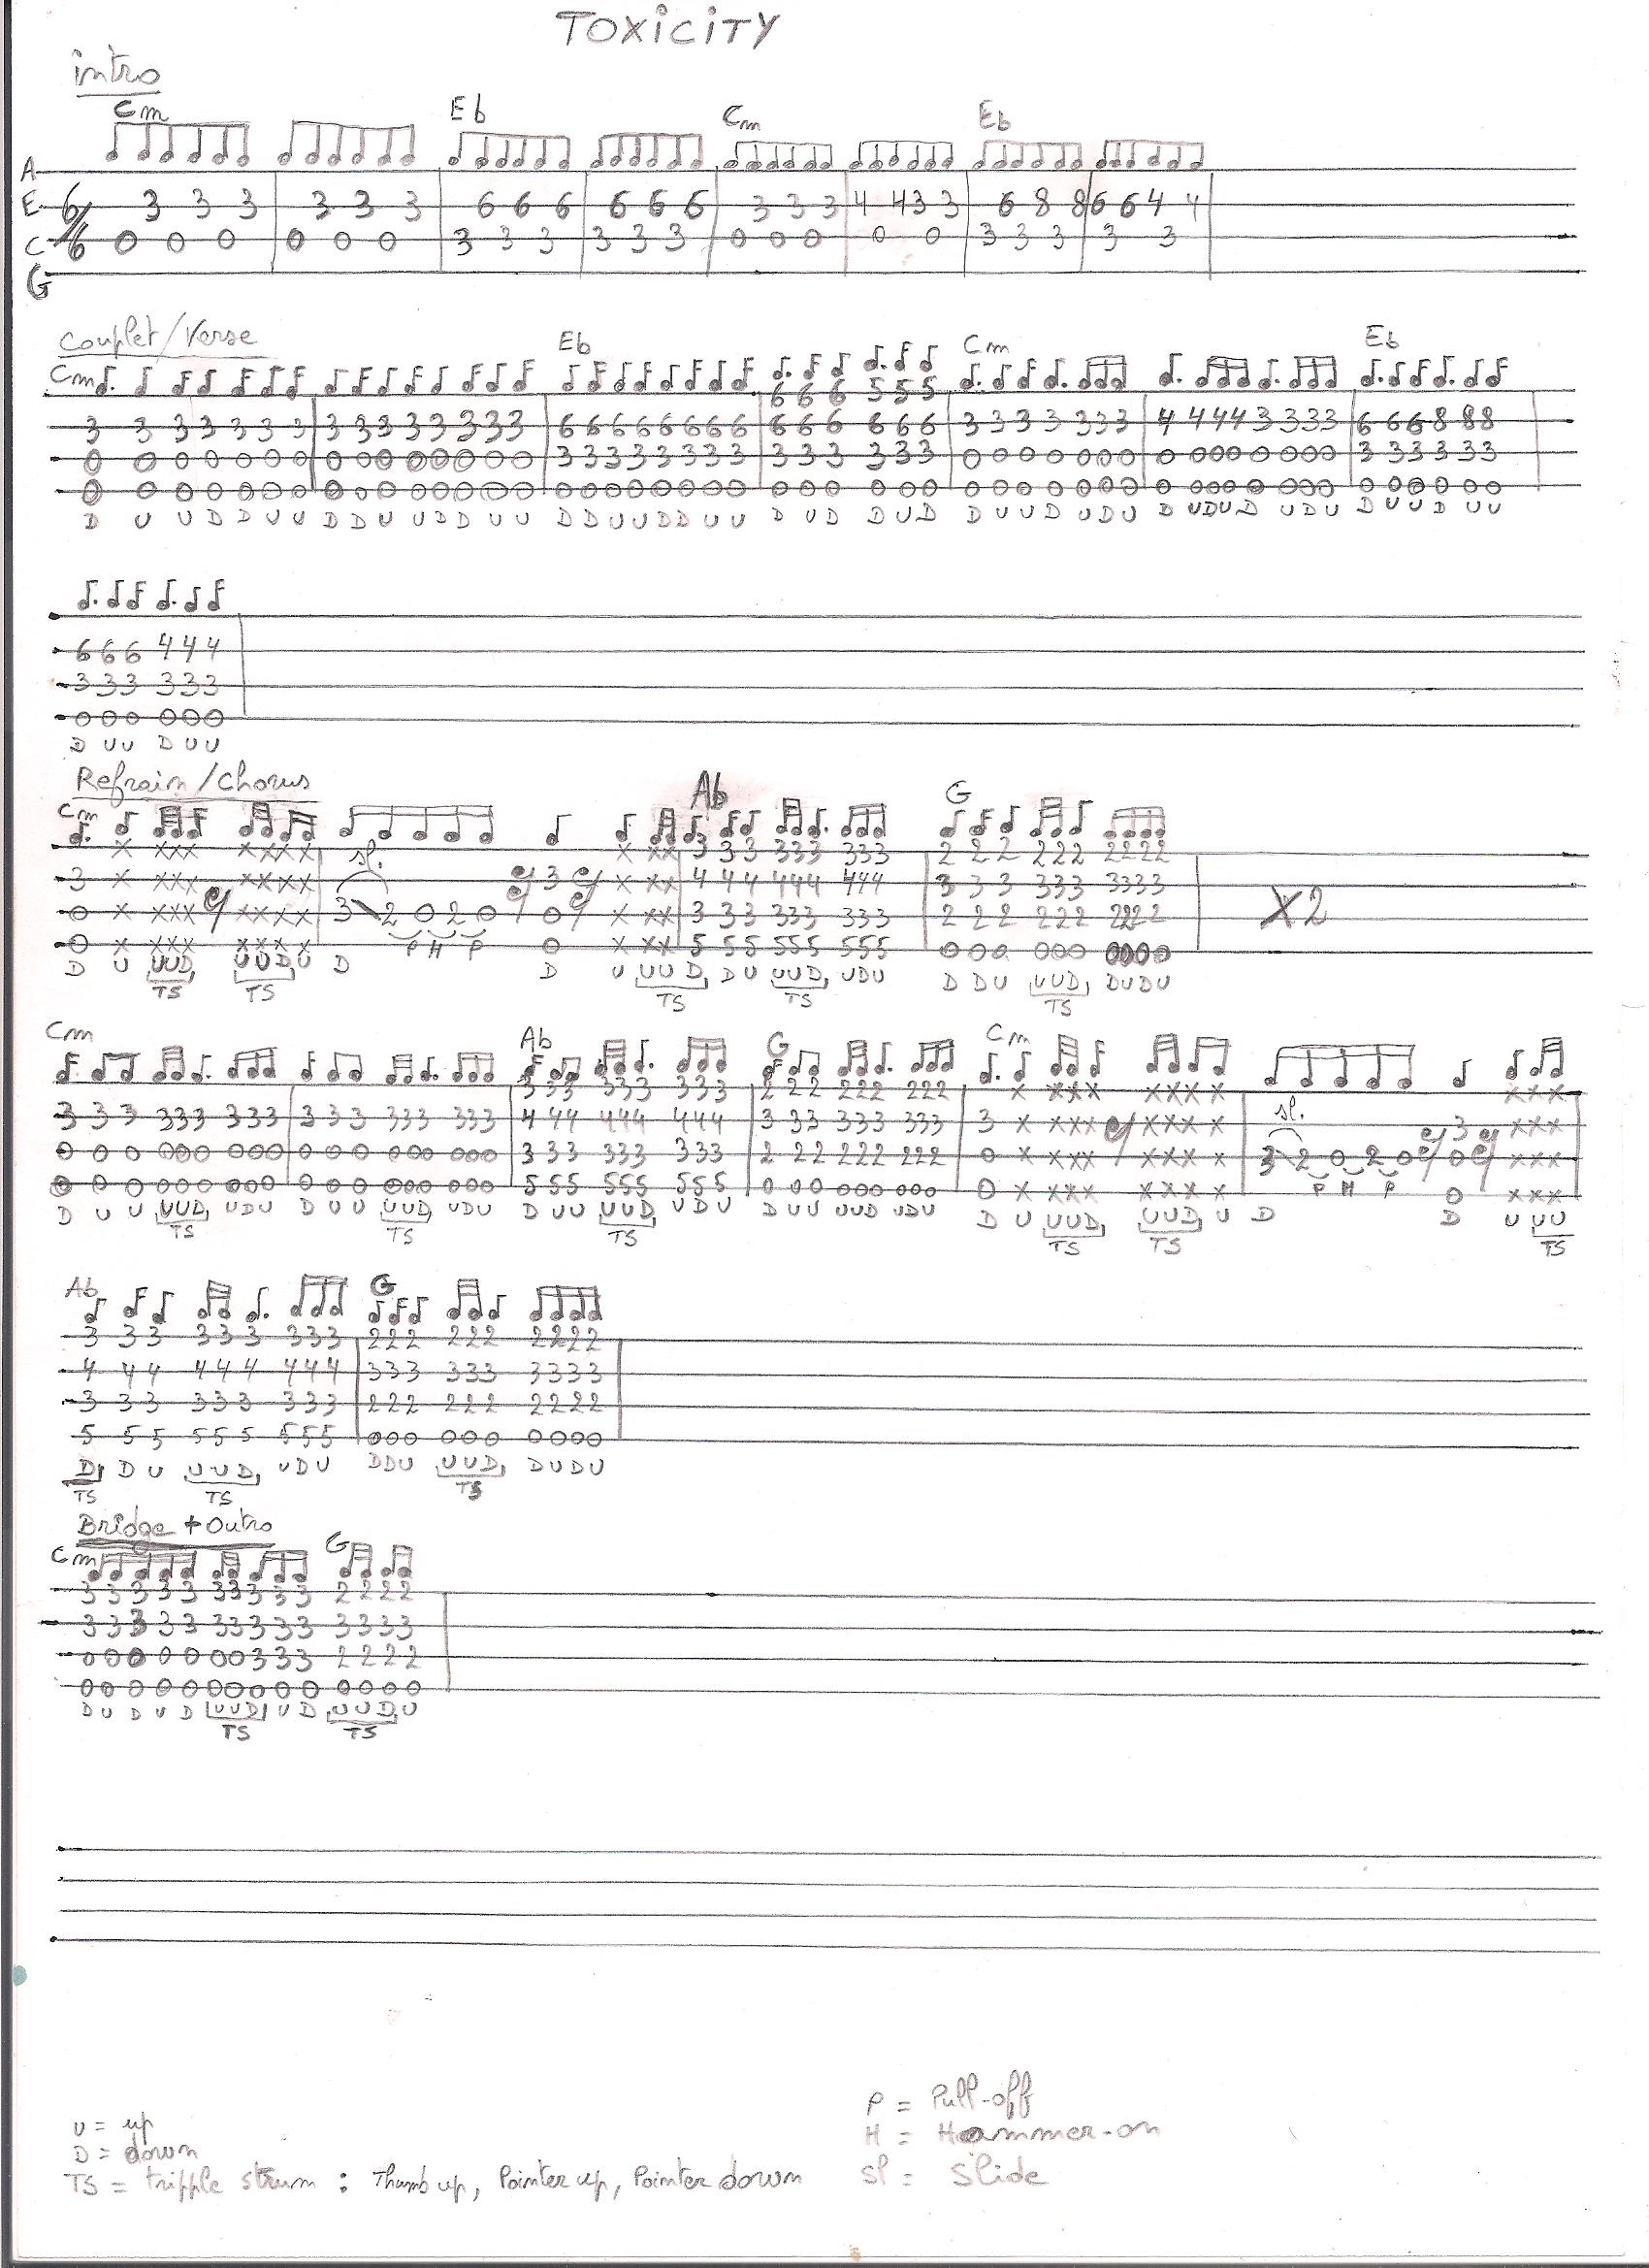 TOXiCiTY
intro
Cm Eb Cm Eb
A
E 6 3 3 3 3 3 3 6 6 6 6 6 6 3 3 3 4 4 3 3 6 8 8 6 6 4 4
C 6 0 0 0 0 0 0 3 3 3 3 3 3 0 0 0 0 0 3 3 3 3 3
G
Couplet/Verse
Cm Eb Cm Eb
6 6 6 5 5 5
3 3 3 3 3 3 3 3 3 3 3 3 3 3 3 6 6 6 6 6 6 6 6 6 6 6 6 6 6 3 3 3 3 3 3 3 4 4 4 4 3 3 3 3 6 6 6 8 8 8
0 0 0 0 0 0 0 0 0 0 0 0 0 0 0 3 3 3 3 3 3 3 3 3 3 3 3 3 3 0 0 0 0 0 0 0 0 0 0 0 0 0 0 0 3 3 3 3 3 3
0 0 0 0 0 0 0 0 0 0 0 0 0 0 0 0 0 0 0 0 0 0 0 0 0 0 0 0 0 0 0 0 0 0 0 0 0 0 0 0 0 0 0 0 0 0 0 0 0 0
D U U D D U U D D U U D D U U D D U U D D U U D U D D U D D U U D U D U D U D U D U D U D U U D U U
6 6 6 4 4 4
3 3 3 3 3 3
0 0 0 0 0 0
D U U D U U
Refrain/Chorus
Cm Ab G
x xxx xxxx x xx 3 3 3 333 333 2 2 2 222 2222
sl.
3 x xxx xxxx 3 x xx 4 4 4 444 444 3 3 3 333 3333
0 x xxx xxxx 3 2 0 2 0 0 x xx 3 3 3 333 333 2 2 2 222 2222
X2
0 x xxx xxxx 0 x xx 5 5 5 555 555 0 0 0 000 0000
P H P
D U UUD UUDU D D U UUD DU UUD UDU D DU UUD DUDU
TS TS TS TS TS
Cm Ab G Cm
3 3 3 333 333 2 2 2 222 222 x xxx xxxx xxx
sl.
3 3 3 333 333 3 3 3 333 333 4 4 4 444 444 3 3 3 333 333 3 x xxx xxxx 3 xxx
0 0 0 000 000 0 0 0 000 000 3 3 3 333 333 2 2 2 222 222 0 x xxx xxxx 3 2 0 2 0 0 xxx
0 0 0 000 000 0 0 0 000 000 5 5 5 555 555 0 0 0 000 000 0 x xxx xxxx 0 xxx
P H P
D U U UUD UDU D U U UUD UDU D U U UUD UDU D U U UUD UDU D U UUD UUD U D D U UU
TS TS TS TS TS TS
Ab G
3 3 3 3 3 3 3 3 3 222 222 2222
4 4 4 4 4 4 4 4 4 333 333 3333
3 3 3 3 3 3 3 3 3 222 222 2222
5 5 5 5 5 5 5 5 5 000 000 0000
D D U UUD UDU DDU UUD DUDU
TS TS TS
Bridge + Outro
Cm G
3 3 3 3 3 3 3 3 3 3 2 2 2 2
3 3 3 3 3 3 3 3 3 3 3 3 3 3
0 0 0 0 0 0 0 3 3 3 2 2 2 2
0 0 0 0 0 0 0 0 0 0 0 0 0 0
D U D U D UUD U D UUD U
TS TS
U = up
D = down
TS = tripple strum : Thumb up, Pointer up, Pointer down
P = Pull-off
H = Hammer-on
Sl = Slide